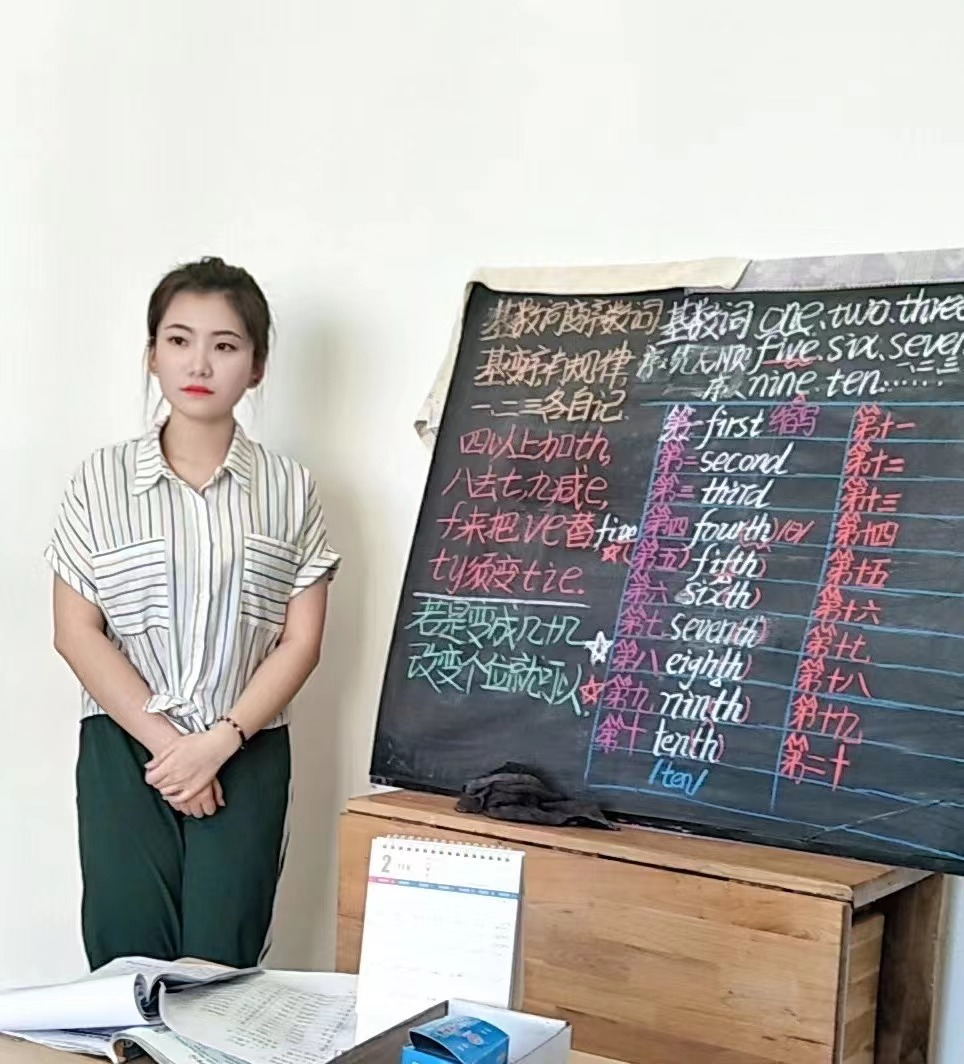 基数词变序数词
基变序有规律
一、二、三各自记
四以上加th,
八去t,九减e,
f来把ve替
ty须变tie.
若是变成几十几
改变个位就可以.
five
基数词 one.two.three
five.six.seven
nine.ten......
第一 first 缩写
第二 second
第三 third
第四 fourth /θ/
第五 fifth
第六 sixth
第七 seventh
第八 eighth
第九 ninth
第十 tenth
/ten/
第十一
第十二
第十三
第十四
第十五
第十六
第十七
第十八
第十九
第二十
2